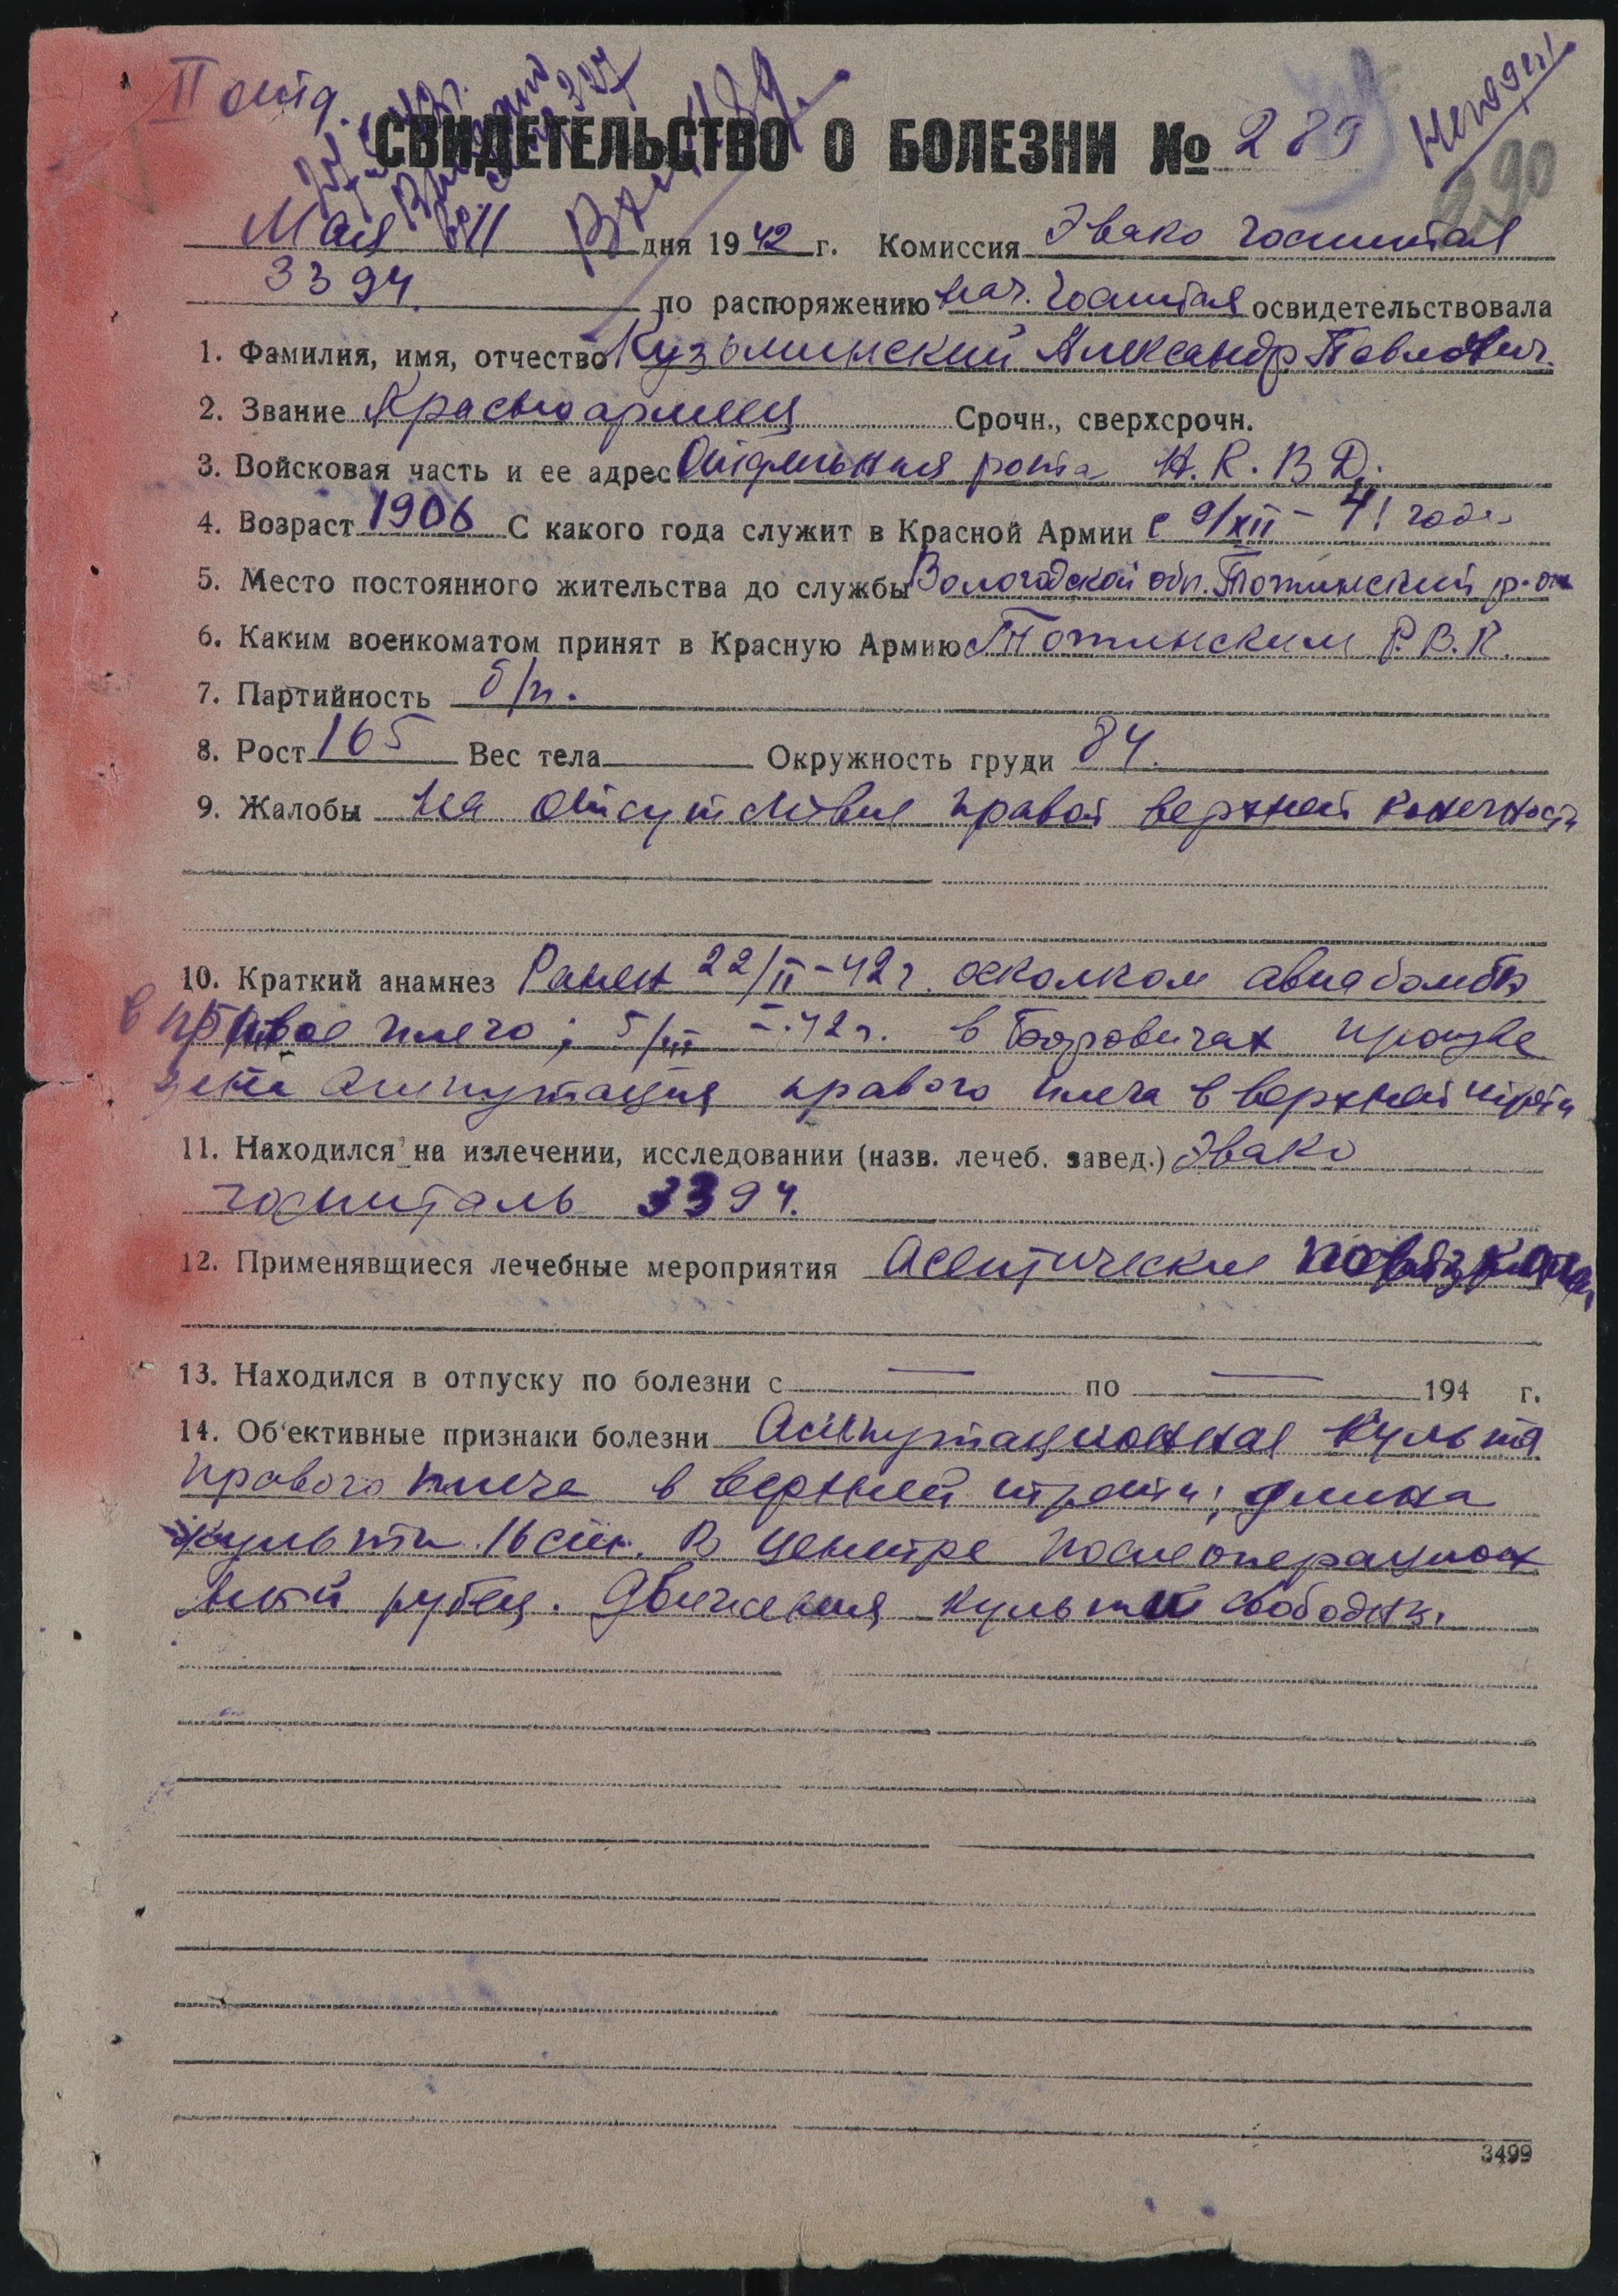 II отд.
СВИДЕТЕЛЬСТВО О БОЛЕЗНИ № 289
290
Мая дня 1942 г. Комиссия Эвако госпиталя
3394. по распоряжению нач. госпиталя освидетельствовала
1. Фамилия, имя, отчество Кузьминский Александр Павлович.
2. Звание Красноармеец Срочн., сверхсрочн.
3. Войсковая часть и ее адрес Отдельная рота Н.К.ВД.
4. Возраст 1906 С какого года служит в Красной Армии с 9/XII - 41 года
5. Место постоянного жительства до службы Вологодской обл. Тотьмский р-он
6. Каким военкоматом принят в Красную Армию Тотьмским Р.В.К.
7. Партийность б/п.
8. Рост 165 Вес тела Окружность груди 84.
9. Жалобы на отсутствие правой верхней конечности
10. Краткий анамнез Ранен 22/II-42 г. осколком авиабомбы
в правое плечо; 5/III-42 г. в Боровичах произве
дена ампутация правого плеча в верхней трети
11. Находился на излечении, исследовании (назв. лечеб. завед.) Эвако
госпиталь 3394.
12. Применявщиеся лечебные мероприятия Асептические
13. Находился в отпуску по болезни с — по — 194 г.
14. Об'ективные признаки болезни Ампутационная культя
правого плеча в верхней трети; длина
культи 16 см. В центре послеоперацион
ный рубец. Движения культи свободны.
3499